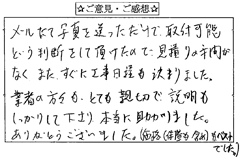 ☆ご意見・ご感想☆
メールにて写真を送っただけで、取付可能
という判断をして頂けたので、見積りの手間が
なく、また、すぐに工事日程も決まりました。
業者の方々も、とても親切で、説明も
しっかりして下さり、本当に助かりました。
ありがとうございました。(価格(保険も含め)もベスト
でした。)